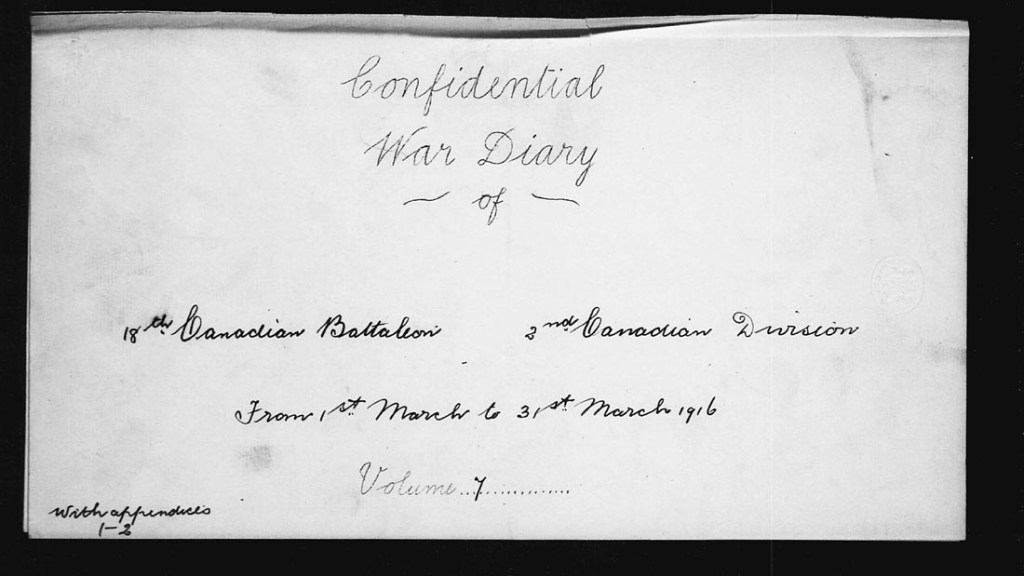 Confidential
War Diary
— of —
18th Canadian Battaleon 2nd Canadian Division
From 1st March to 31st March 1916
Volume..7.............
With appendices
1-2